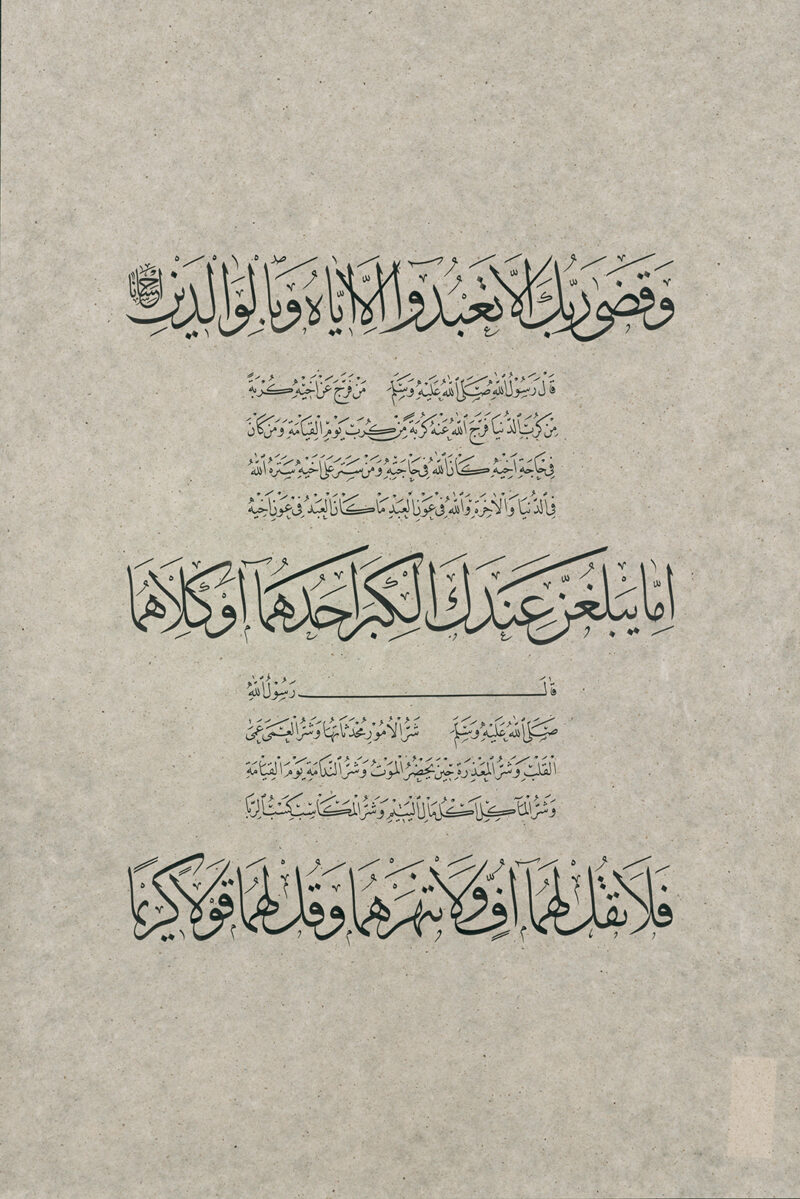 وَقَضَىٰ رَبُّكَ اَلَّا تَعْبُدُوٓا اِلَّٓا اِيَّاهُ وَبِالْوَالِدَيْنِ اِحْسَانًا
قَالَ رَسُولُ اللّٰهِ صَلَّى اللّٰهُ عَلَيْهِ وَسَلَّمَ مَنْ فَرَّجَ عَنْ اَخِيْهِ كُرْبَةً
مِنْ كُرَبِ الدُّنْيَا فَرَّجَ اللّٰهُ عَنْهُ كُرْبَةً مِنْ كُرَبِ يَوْمِ الْقِيَامَةِ وَمَنْ كَانَ
فِى حَاجَةِ اَخِيْهِ كَانَ اللّٰهُ فِى حَاجَتِهِ وَمَنْ سَتَرَ عَلَى اَخِيْهِ سَتَرَهُ اللّٰهُ
فِى الدُّنْيَا وَالْاٰخِرَةِ وَاللّٰهُ فِى عَوْنِ الْعَبْدِ مَا كَانَ الْعَبْدُ فِى عَوْنِ اَخِيْهِ
اِمَّا يَبْلُغَنَّ عِنْدَكَ الْكِبَرَ اَحَدُهُمَٓا اَوْ كِلَاهُمَا
قَالَ رَسُولُ اللّٰهِ
صَلَّى اللّٰهُ عَلَيْهِ وَسَلَّمَ شَرُّ الْاُمُوْرِ مُحْدَثَاتُهَا وَشَرُّ الْعَمَى عَمَى
الْقَلْبِ وَشَرُّ الْمَعْذِرَةِ حِيْنَ يَحْضُرُ الْمَوْتُ وَشَرُّ النَّدَامَةِ يَوْمَ الْقِيَامَةِ
وَشَرُّ الْمَآكِلِ اَكْلُ مَالِ الْيَتِيْمِ وَشَرُّ الْمَكَاسِبِ كَسْبُ الرِّبَا
فَلَا تَقُلْ لَهُمَٓا اُفٍّ وَلَا تَنْهَرْهُمَا وَقُلْ لَهُمَا قَوْلًا كَرِيْمًا